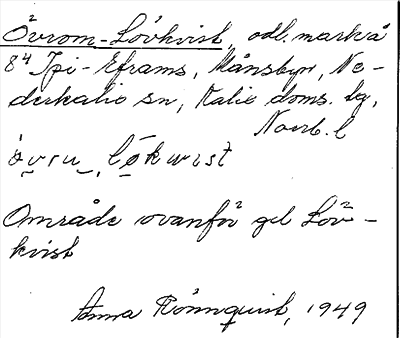 Övrom-Lövkvist, odl. mark å
8⁴ Ipi-Eframs, Månsbyn, Ne-
derkalix sn, Kalix doms. lg,
Norrb. l
övru, løkwɪst
Område ovanför gel Löv-
kvist
Anna Rönnquist, 1949